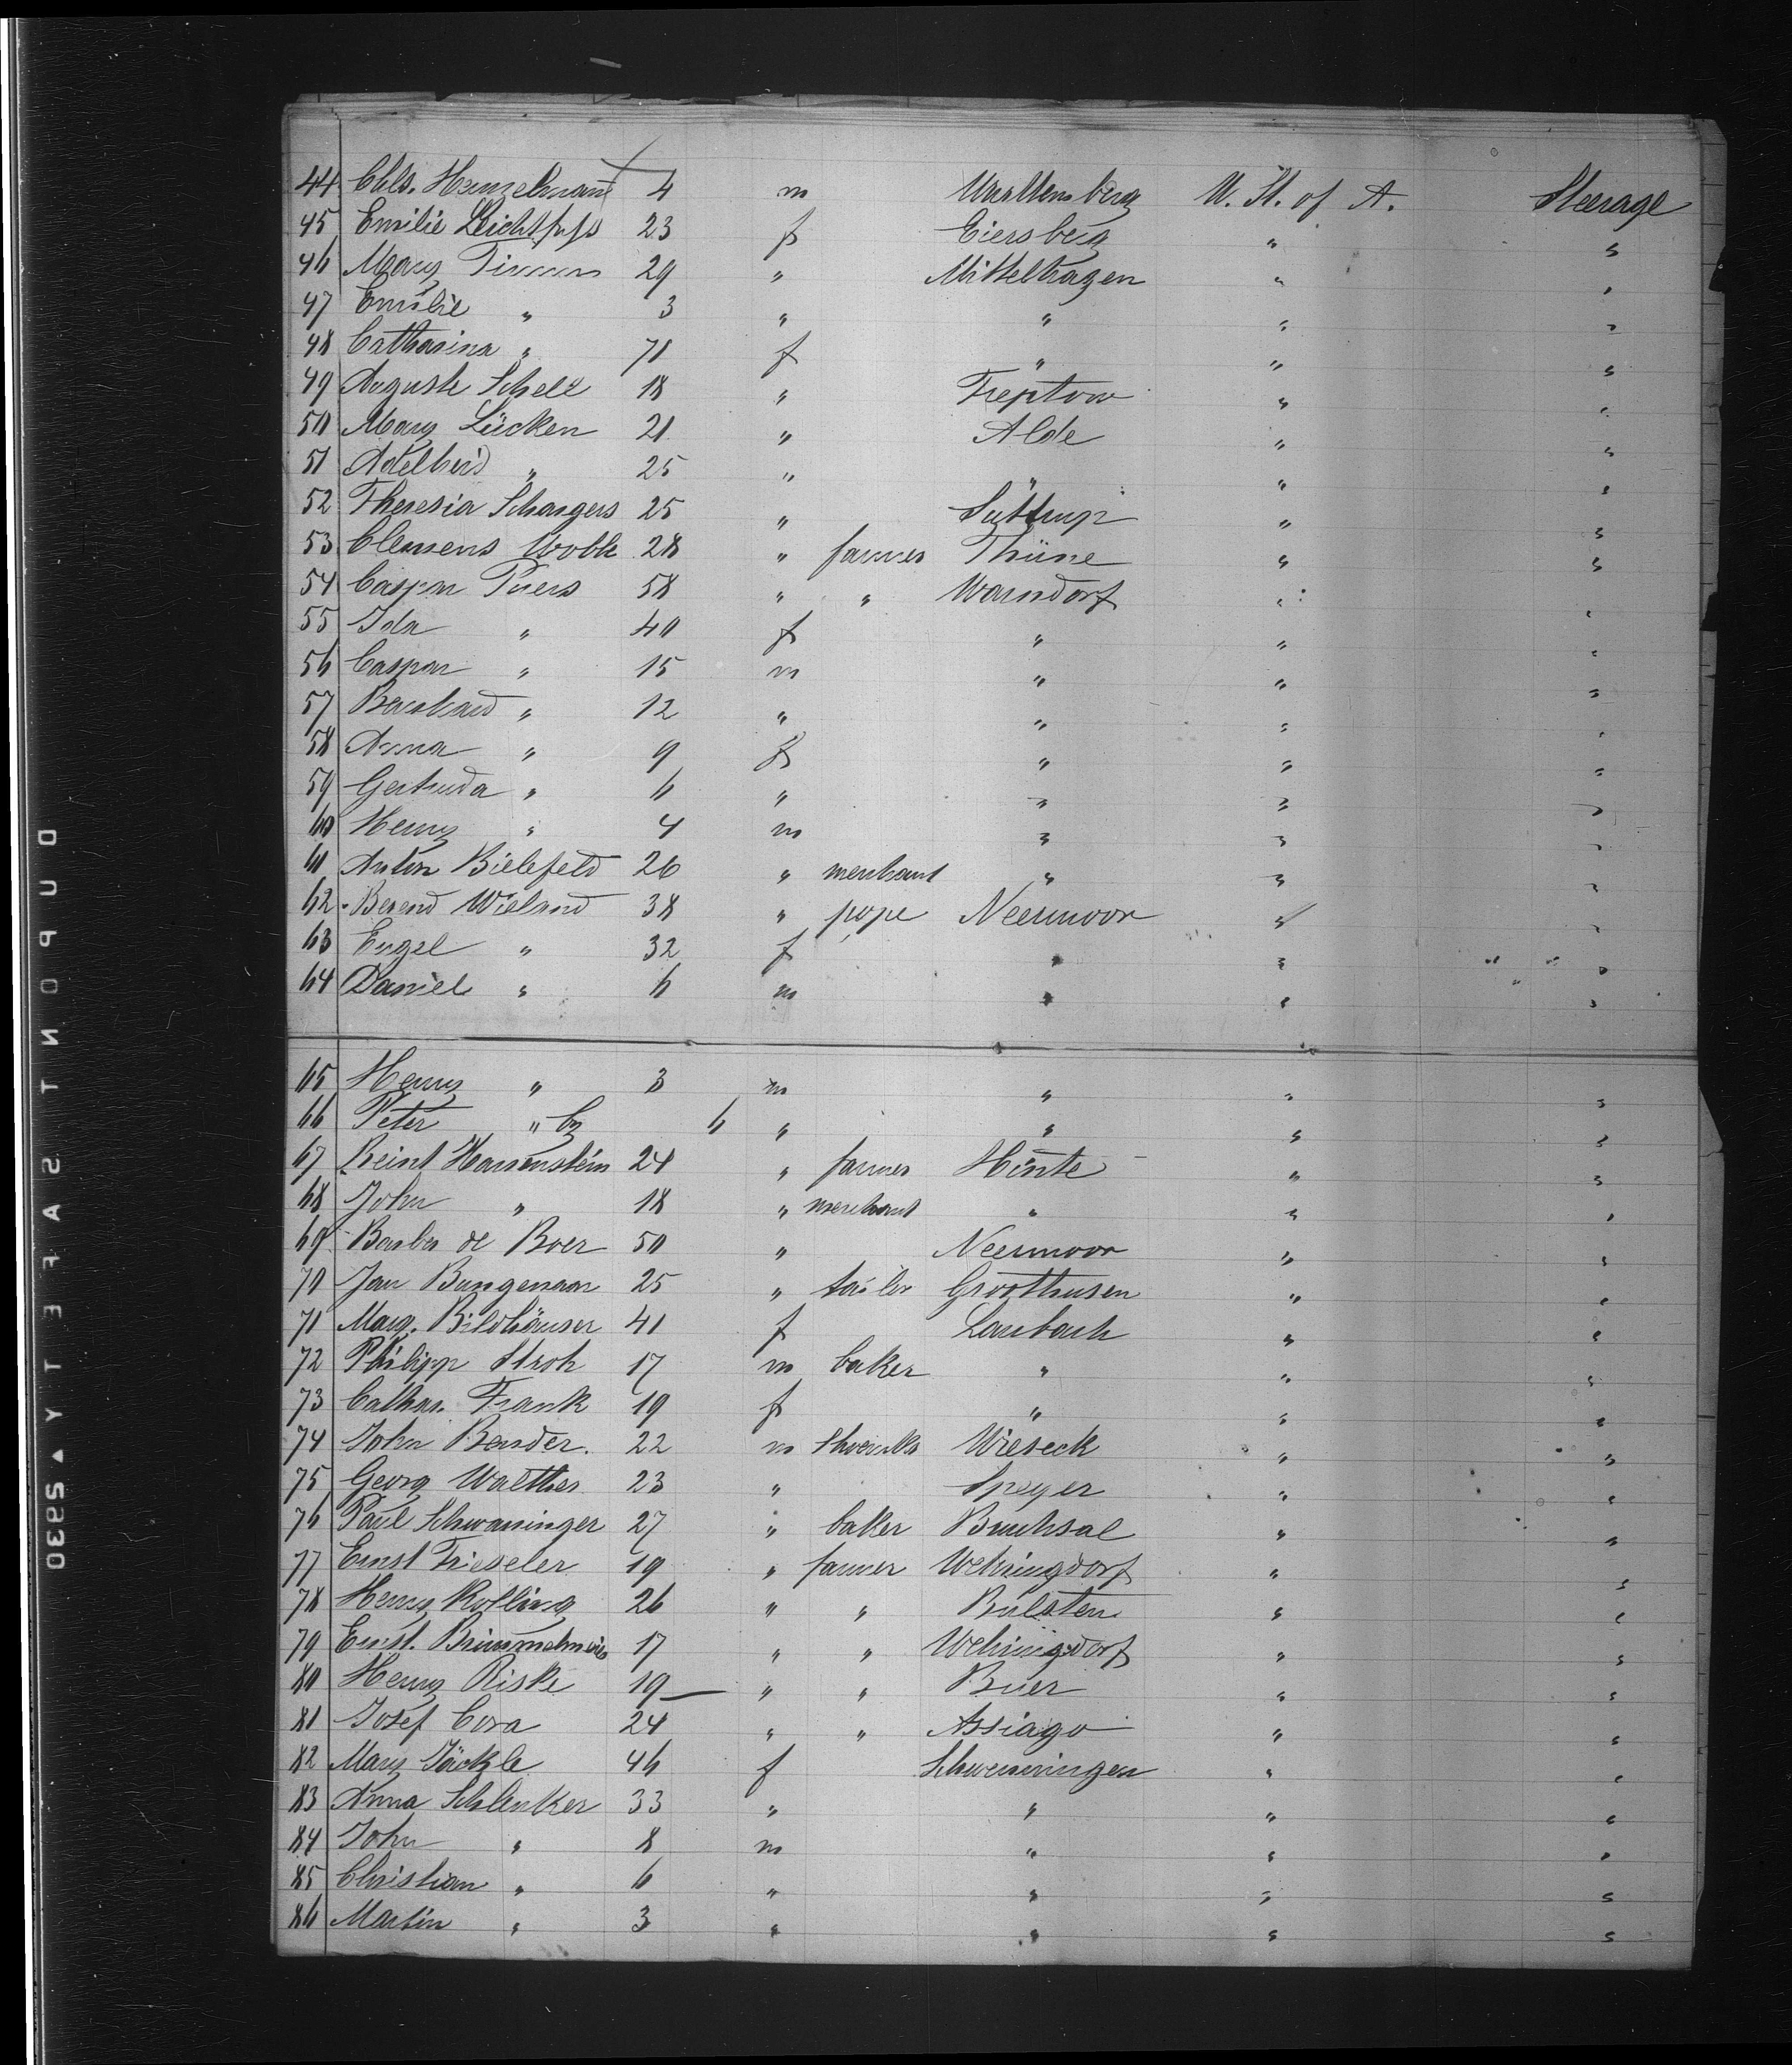 44 Chls. Hemzelmann 4 m Württemberg U. St. of A. Steerage
45 Emilie Leichtfuss 23 f Eiersberg " "
46 Mary Timm 29 " Mittelhagen " "
47 Emilie " 3 " " " "
48 Catharina " 71 f " " "
49 Auguste Schell 18 " Treptow " "
50 Mary Lücken 21 " Alde " "
51 Adelheid " 25 " " " "
52 Theresia Schargers 25 " Süttrup " "
53 Clemens Wobk 28 " farmer Thüne " "
54 Caspar Puers 58 " " Warndorf " "
55 Ida " 40 f " " "
56 Caspar " 15 m " " "
57 Bernhard " 12 " " " "
58 Anna " 9 f " " "
59 Gertruda " 6 " " " "
60 Henry " 4 m " " "
61 Anton Bielefeld 26 " merchant " " "
62 Berend Wieland 38 " pope Neermoor " "
63 Engel " 32 f " " "
64 Daniel " 6 m " " "
65 Henry " 3 m " " "
66 Peter " by 6 " " " "
67 Reint Harrenstein 24 " farmer Hinte " "
68 John " 18 " merchant " " "
69 Barber de Boer 50 " Neermoor " "
70 Jan Bungenaar 25 " tailor Groothusen " "
71 Marg. Bildhäuser 41 f Laubach " "
72 Philipp Stroh 17 m baker " " "
73 Cathar. Frank 19 f " " "
74 John Bender. 22 m Wieseck " "
75 Georg Walther 23 " Speyer " "
76 Paul Schwaninger 27 " baker Bruchsal " "
77 Ernst Frieseler 19 " farmer Wehringdorf " "
78 Henry Rolling 26 " " Bulsten " "
79 Ernst. 17 " " Wehringdorf " "
80 Henry Riske 19 " " Buer " "
81 Josef Cora 24 " " Assiago " "
82 Mary Jäckle 46 f Schwenningen " "
83 Anna Schlenker 33 " " " "
84 John " 8 m " " "
85 Christian " 6 " " " "
86 Martin " 3 " " " "
DUPONT SAFETY ▲ 2930